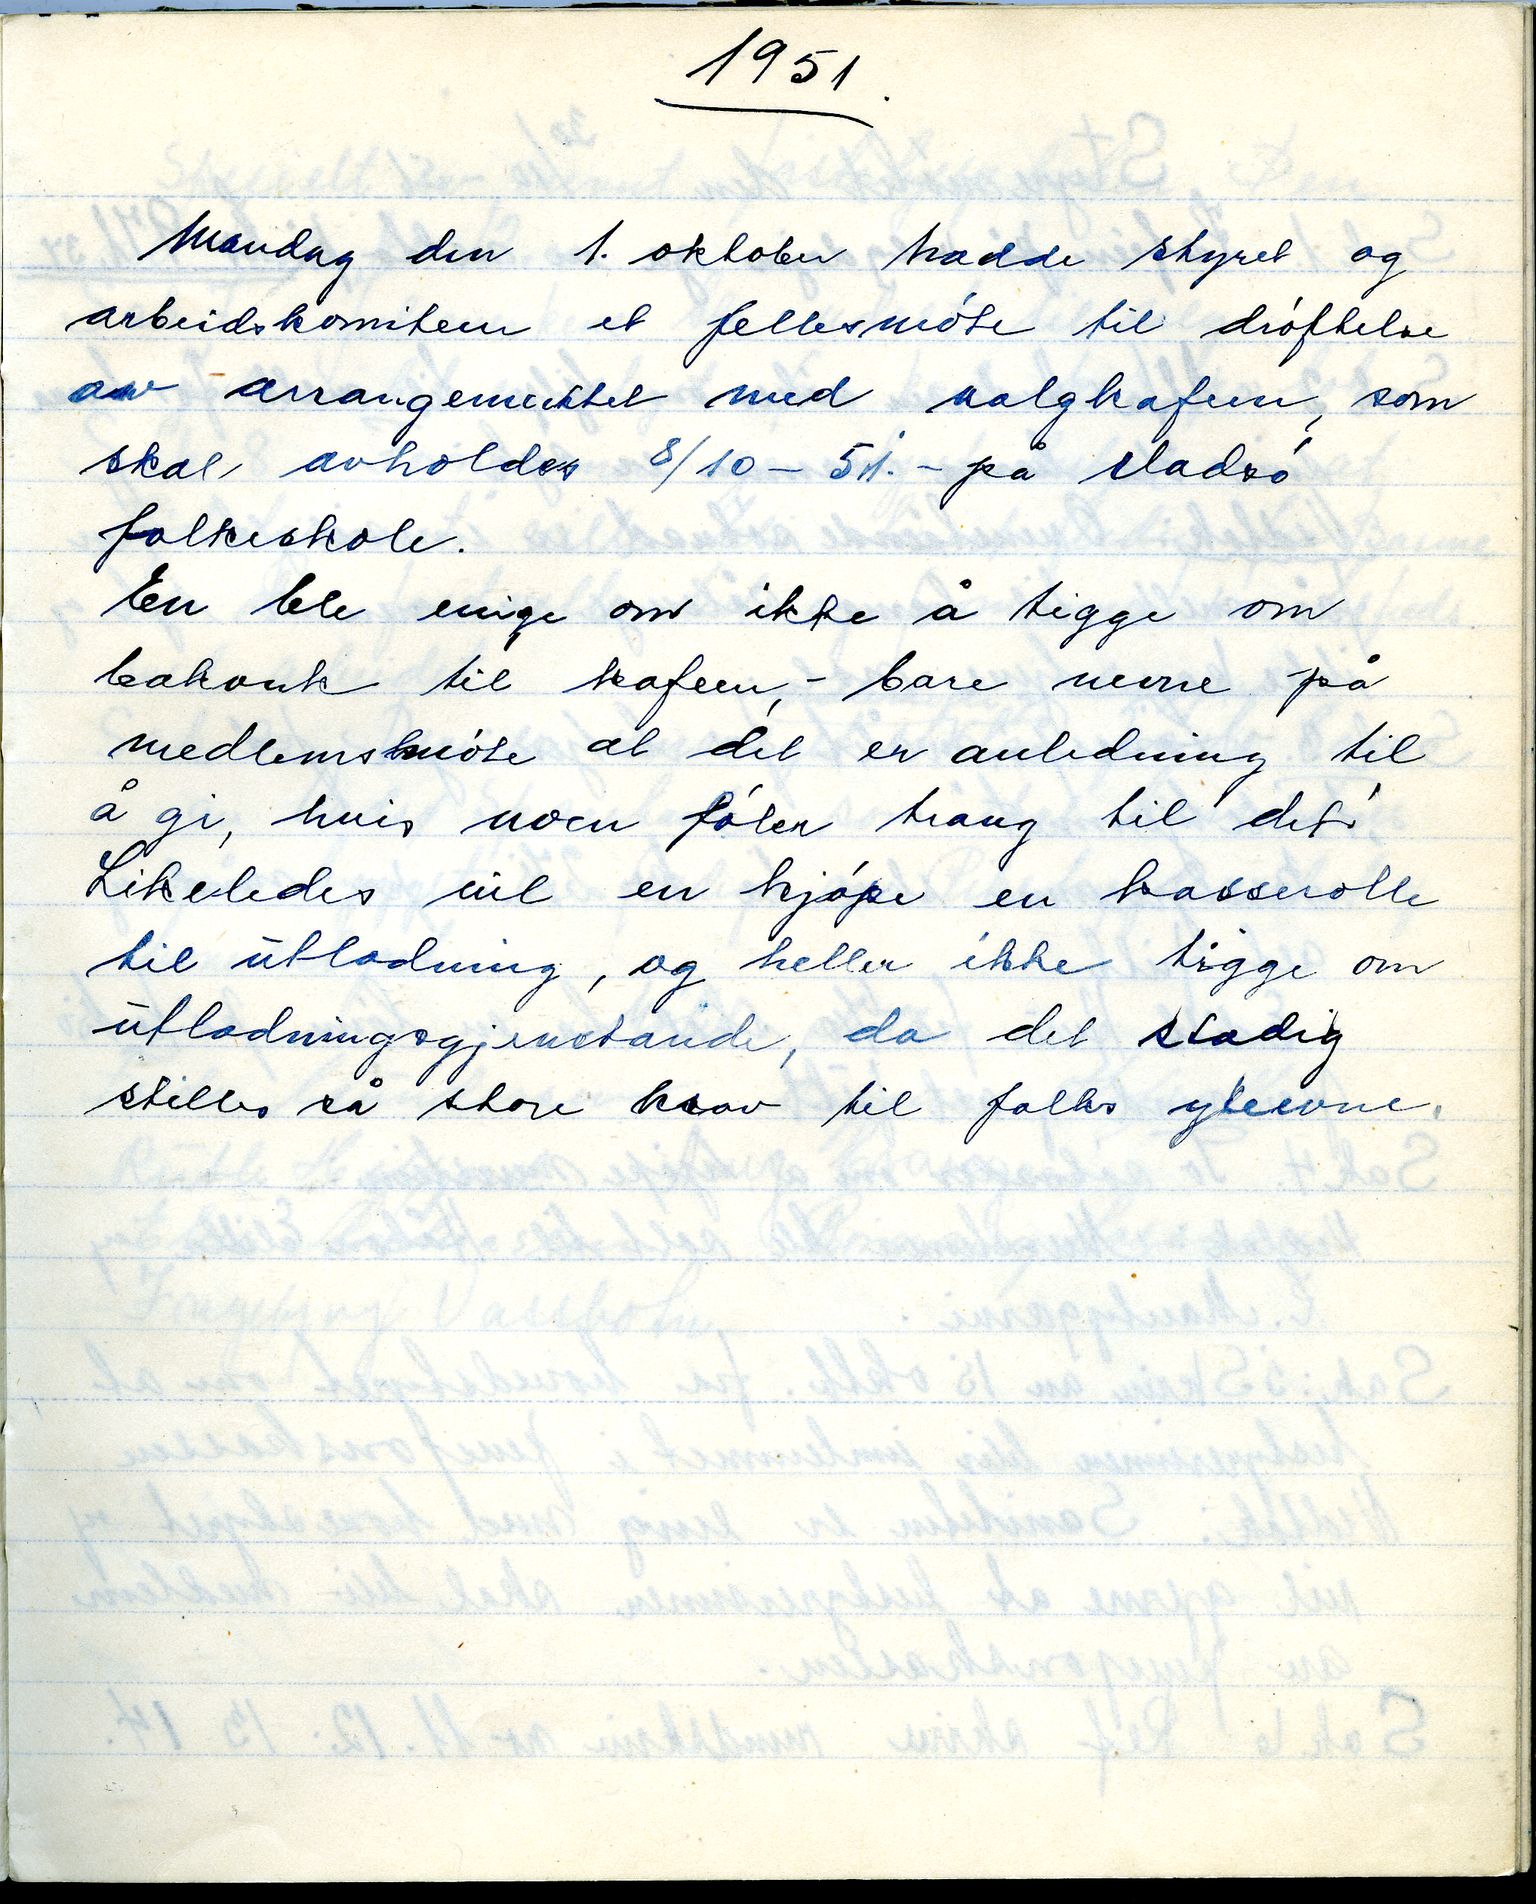 1951.
Mandag den 1. oktober hadde styret og
arbeidskomiteen et fellesmöte til dröftelse
av arrangementet med valgkafeen, som
skal avholdes 8/10 - 51. - på Vadsö
folkeskole.
En ble enige om ikke å tigge om
bakouk til kafeen, - bare nevne på
medlemsmöte at det er anledning til
å gi, hvis noen föler trang til det.
Likeledes vil en kjöpe en kasserolle
til utlodning, og heller ikke tigge om
utlodningsgjenstande, da det stadig
stilles så store krav til folks yteevne.